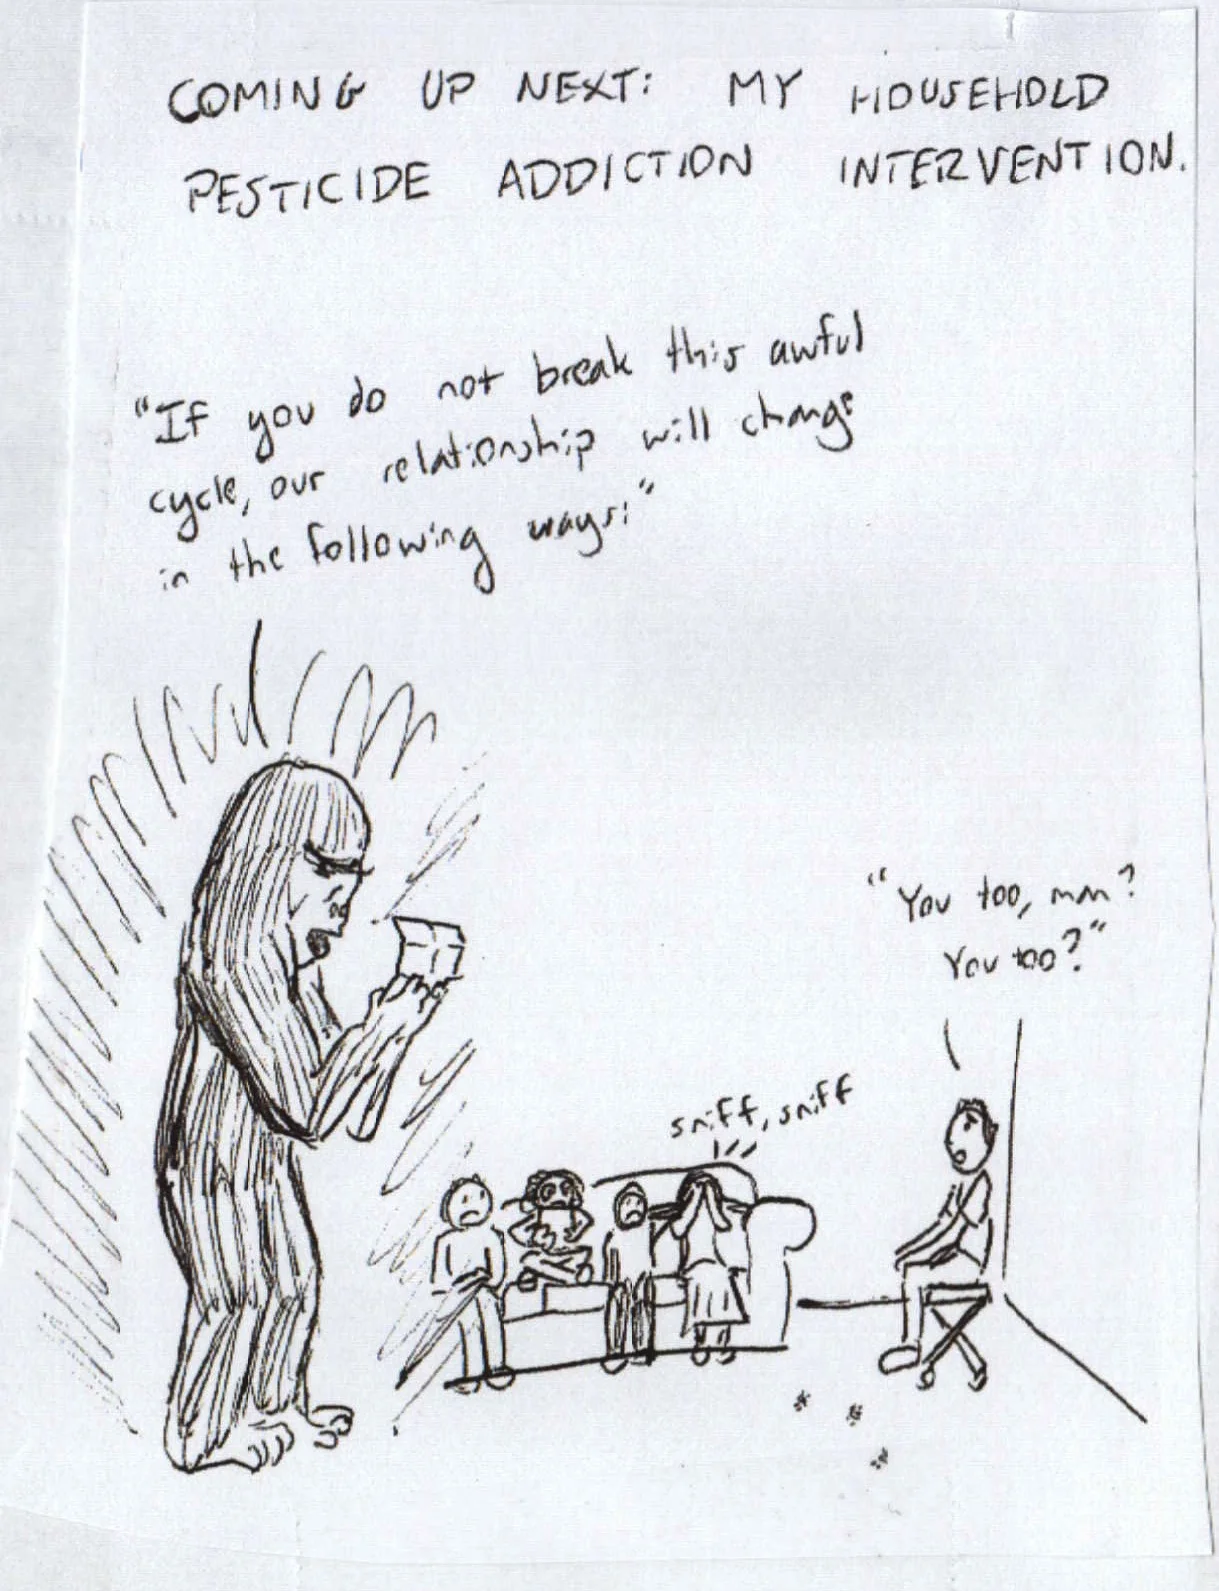 COMING UP NEXT: MY HOUSEHOLD
PESTICIDE ADDICTION INTERVENTION.
"If you do not break this awful
cycle, our relationship will change
in the following ways:"
"You too, man?
You too?"
sniff, sniff